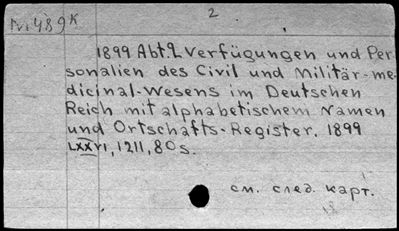 2
N. 489к
1899 Abt. 2 Verfügungen und Per-
sonalien des Civil und Militär-me-
dicinal-Wesens im Deutschen
Reich mit alphabetischem Namen
und Ortschafts-Register. 1899
LXXVI, 1211, 80 s.
см. след. карт.